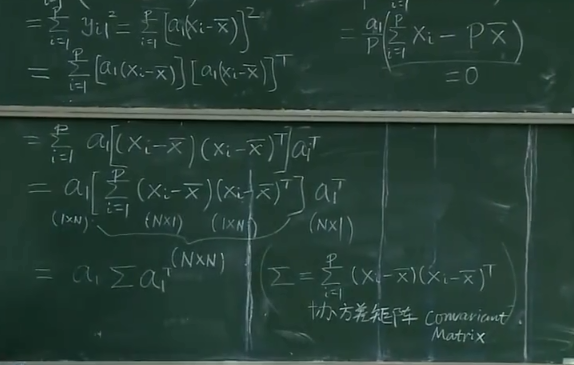 = Σ_{i=1}^{P} y_{i1}² = Σ_{i=1}^{P} [a₁(xᵢ-x̄)]²
= Σ_{i=1}^{P} [a₁(xᵢ-x̄)] [a₁(xᵢ-x̄)]ᵀ
i=1
= a₁/P (Σ_{i=1}^{P} xᵢ - P x̄)
=0
= Σ_{i=1}^{P} a₁[(xᵢ-x̄)(xᵢ-x̄)ᵀ]a₁ᵀ
= a₁[Σ_{i=1}^{P} (xᵢ-x̄)(xᵢ-x̄)ᵀ] a₁ᵀ
(1×N) (N×1) (1×N) (N×1)
(N×N)
= a₁ Σ a₁ᵀ (Σ = Σ_{i=1}^{P} (xᵢ-x̄)(xᵢ-x̄)ᵀ)
协方差矩阵 Convariant
Matrix